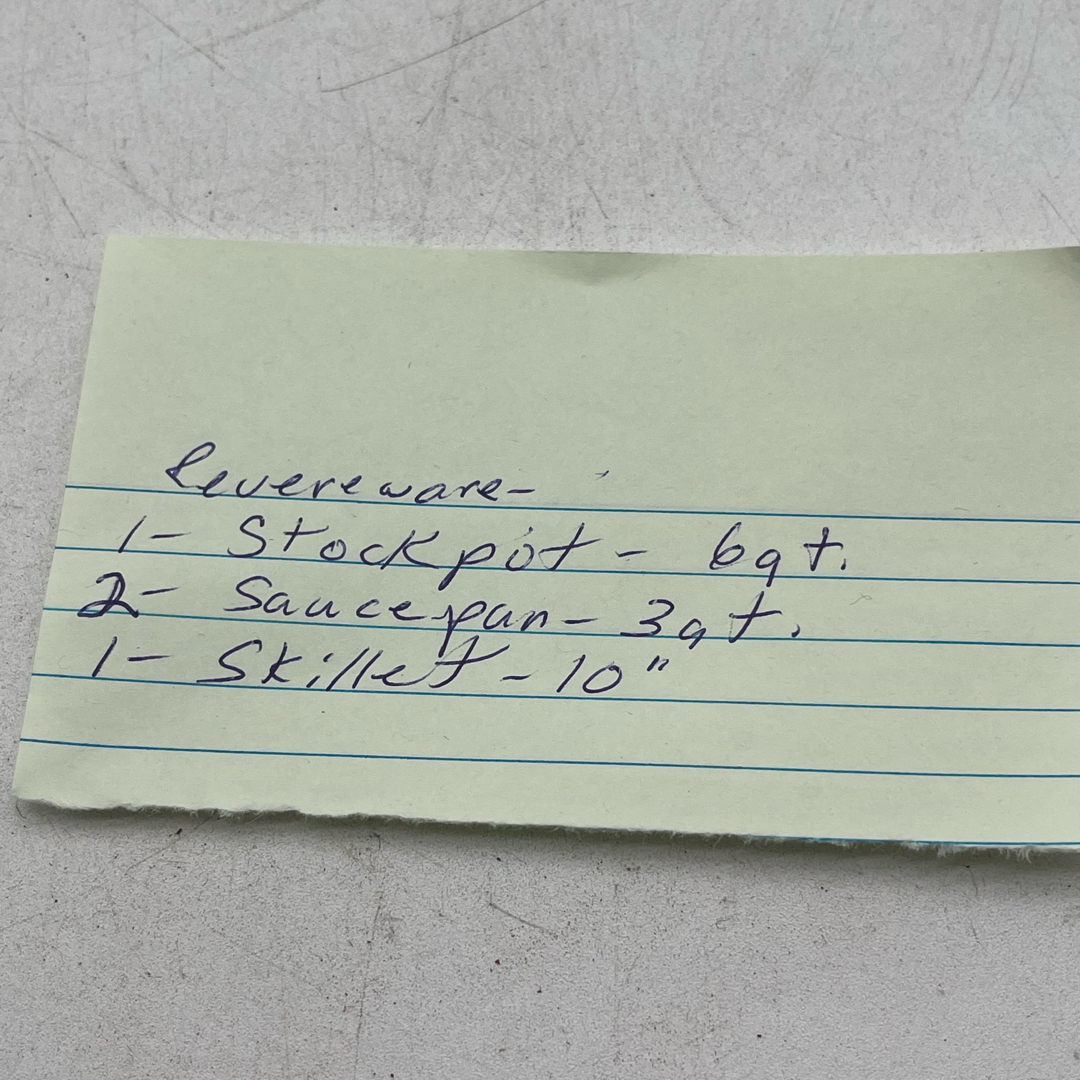 Revereware-
1- Stockpot - 6qt.
2- Saucepan- 3qt.
1- Skillet - 10"